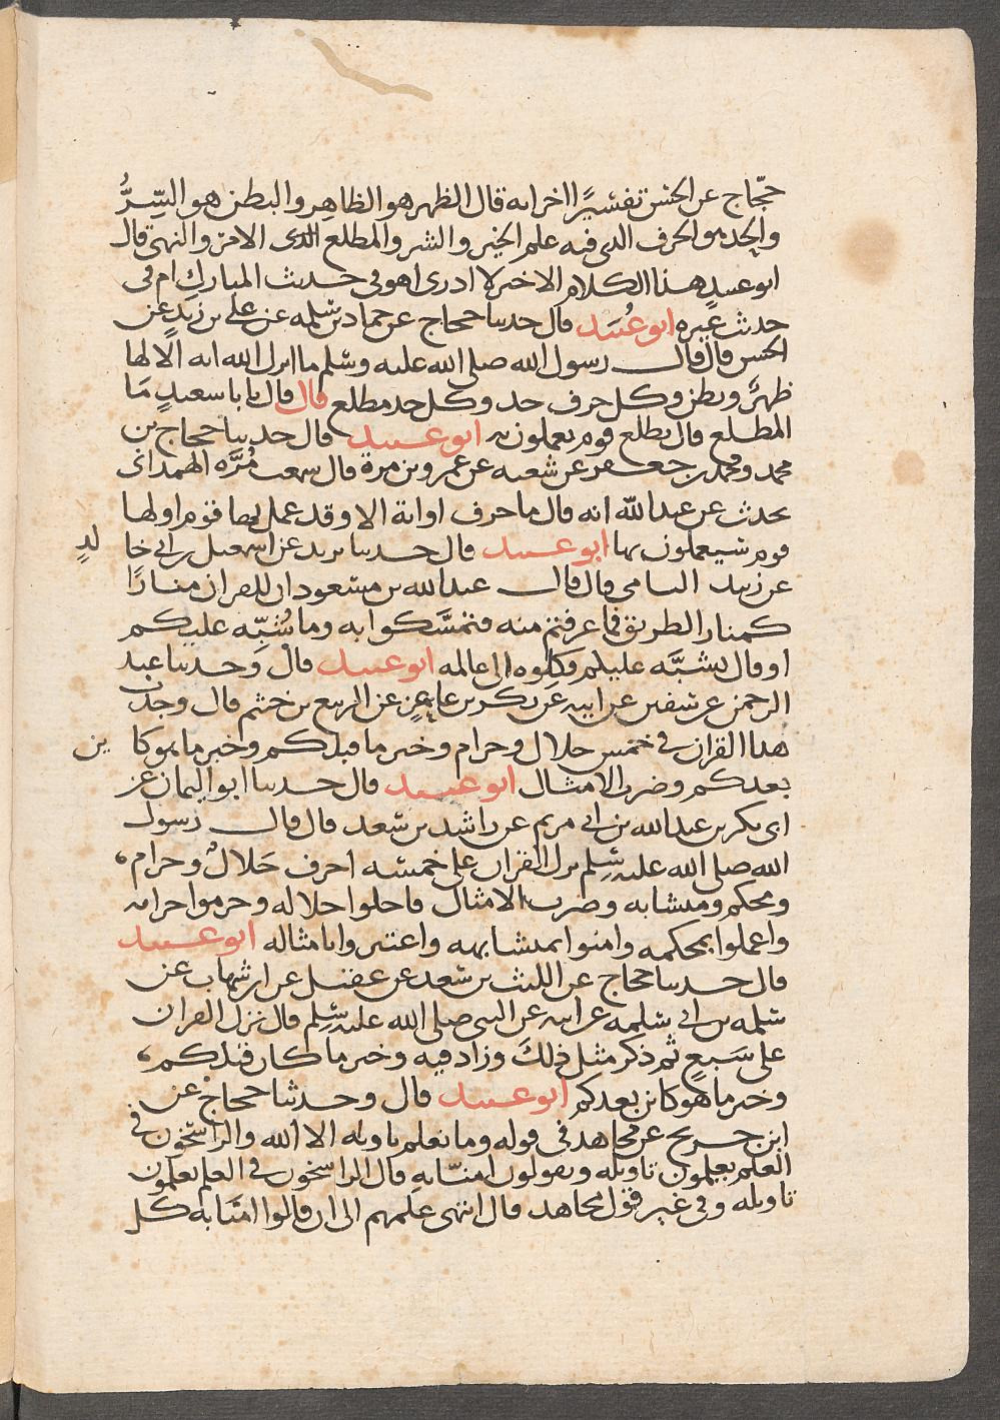 حجّاج عن الحسن تفسيرًا اخر انه قال الظهر هو الظاهر والبطن هو السِّرُّ
والحد هو الحرف الذي فيه علم الخير والشر والمطلع الذى الامر والنهى قال
ابو عبيد هذا الكلام الاخير لا ادرى اهو فى حديث المبارك ام فى
حديث غيره ابو عُبيد قال حدثنا حجاج عن حماد بن سلمه عن على بن زيد عن
الحسن قال قال رسول الله صلى الله عليه وسلم ما انزل الله ايه الا لها
ظهرٌ وبطن وكل حرف حد وكل حد مطلع قال قال يابا سعيد مَا
المطلع قال يطلع قوم يعملون به ابو عبيد قال حدثنا حجاج بن
محمد ومحمد بن جعفر عن شعبه عن عمرو بن مرة قال سمعت مُرَّه الهمدانى
يحدث عن عبد الله انه قال ما حرف او اية الا وقد عمل بها قوم او لها
قوم سيعملون بها ابو عبيد قال حدثنا يزيد عن اسمعيل بن ابي خا لدٍ
عن زبيد اليامى قال قال عبد الله بن مسعود ان للقران منارًا
كمنار الطريق فما عرفتم منه فتمسَّكوا به وما شُبِّه عليكم
او قال يشبَّه عليكم فكِلوه الى عالمه ابو عبيد قال وحدثنا عبد
الرحمن عن سفين عن ابيه عن بكر بن ماعز عن الربيع بن خثيم قال وجدت
هذا القران في خمس حلال وحرام وخبر ما قبلكم وخبر ما هو كا ين
بعدكم وضرب الامثال ابو عبيد قال حدثنا ابو اليمان عن
ابى بكر بن عبد الله بن ابي مريم عن راشد بن سعد قال قال رسول
الله صلى الله عليه سلم نزل القران على خمسه احرف حَلالٌ وحرام،
ومحكم ومتشابه وضرب الامثال فاحلوا حلاله وحرموا حرامه
واعملوا بمحكمه وامنوا بمتشابهه واعتبروا بامثاله ابو عبيد
قال حدثنا حجاج عن الليث بن سعد عن عقيل عن ابن شهاب عن
سلمه بن ابي سلمه عن ابيه عن النبى صلى الله عليه سلم قال نزل القران
على سَبعٍ ثم ذكر مثل ذلكَ وزاد فيه وخبر ما كان قبلكم،
وخبر ما هو كائن بعدكم ابو عبيد قال وحدثنا حجاج عن
ابن جريح عن مجاهد فى قوله وما يعلم تاويله الا الله والراسخون في
العلم يعلمون تاويله ويقولون امنّا به قال الراسخون في العلم يعلمون
تاويله وفى غير قول مجاهد قال انتهى علمهم الى ان قالوا امنّا به كل